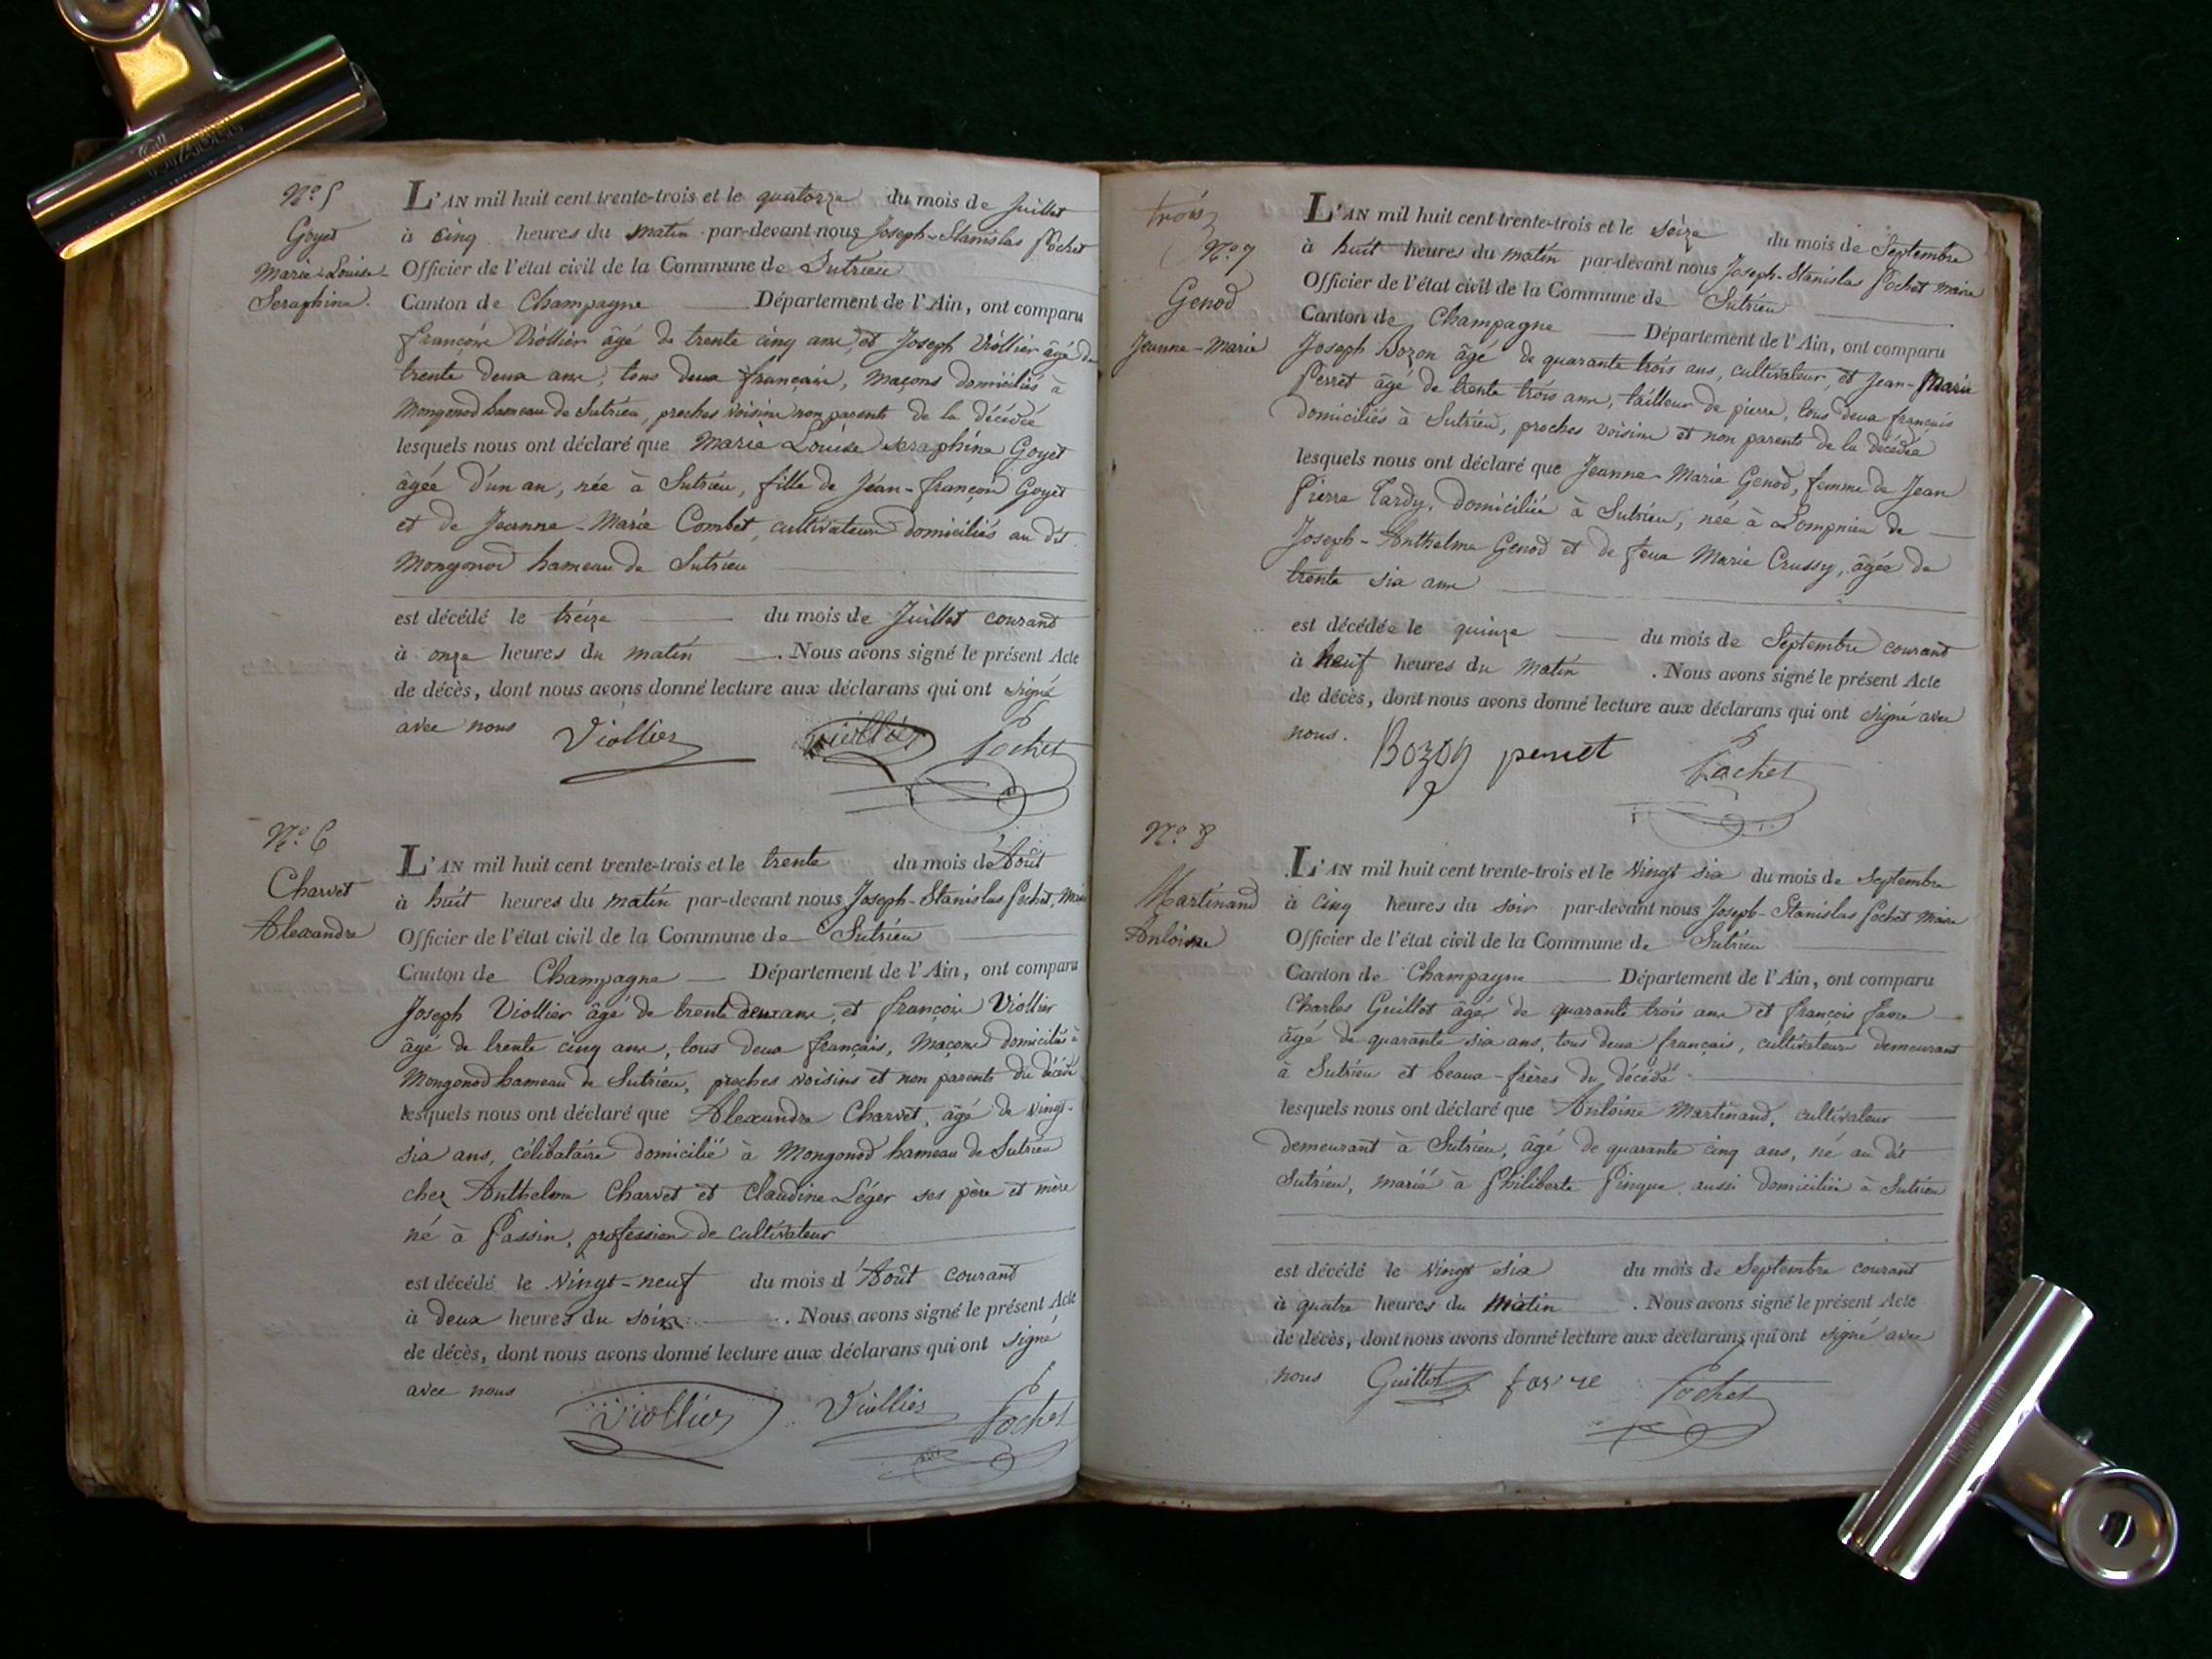 N.o 5
Goyet
Marie-Louise
Seraphine.
L'AN mil huit cent trente-trois et le quatorze du mois de Juillet
à cinq heures du matin par-devant nous Joseph-Stanislas Pochet
Officier de l'état civil de la Commune de Sutrieu
Canton de Champagne Département de l'Ain, ont comparu
françois Viollier âgé de trente cinq ans, et Joseph Viollier âgé de
trente deux ans, tous deux français, maçons domiciliés à
Mongonod hameau de Sutrieu, proches voisins non parents de la décédée
lesquels nous ont déclaré que Marie Louise seraphine Goyet
âgée d'un an, née à Sutrieu, fille de Jean-françois Goyet
et de Jeanne-Marie Combet, cultivateurs domiciliés au dit
Mongonod hameau de Sutrieu
est décédé le treize du mois de Juillet courant
à onze heures du matin . Nous avons signé le présent Acte
de décès, dont nous avons donné lecture aux déclarans qui ont signé
avec nous Viollier Viollier Pochet
N.o 6
Charvet
Alexandre
L'AN mil huit cent trente-trois et le trente du mois d'Août
à huit heures du matin par-devant nous Joseph-Stanislas Pochet, Maire
Officier de l'état civil de la Commune de Sutrieu
Canton de Champagne Département de l'Ain, ont comparu
Joseph Viollier âgé de trente deux ans, et françois Viollier
âgé de trente cinq ans, tous deux français, Maçons domiciliés à
Mongonod hameau de Sutrieu, proches voisins et non parents du décédé
lesquels nous ont déclaré que Alexandre Charvet, âgé de vingt-
six ans, célibataire domicilié à Mongonod hameau de Sutrieu
chez Anthelme Charvet et Claudine Léger ses père et mère
né à Passin, profession de cultivateur
est décédé le vingt-neuf du mois d'Août courant
à deux heures du soir . Nous avons signé le présent Acte
de décès, dont nous avons donné lecture aux déclarans qui ont signé
avec nous Viollier Viollier Pochet
trois
N.o 7
Genod
Jeanne-Marie
L'AN mil huit cent trente-trois et le seize du mois de Septembre
à huit heures du matin par-devant nous Joseph-Stanislas Pochet maire
Officier de l'état civil de la Commune de Sutrieu
Canton de Champagne Département de l'Ain, ont comparu
Joseph Bozon âgé de quarante trois ans, cultivateur, et Jean-Marie
Perret âgé de trente trois ans, tailleur de pierre, tous deux français
domiciliés à Sutrieu, proches voisins et non parents de la décédée
lesquels nous ont déclaré que Jeanne-Marie Genod, femme de Jean
Pierre Tardy, domiciliée à Sutrieu, née à Lompnieu de
Joseph-Anthelme Genod et de feue Marie Crussy, âgée de
trente six ans
est décédée le quinze du mois de Septembre courant
à neuf heures du matin . Nous avons signé le présent Acte
de décès, dont nous avons donné lecture aux déclarans qui ont signé avec
nous. Bozon perret Pochet
N.o 8
Martinand
Antoine
L'AN mil huit cent trente-trois et le vingt six du mois de Septembre
à cinq heures du soir par-devant nous Joseph-Stanislas Pochet Maire
Officier de l'état civil de la Commune de Sutrieu
Canton de Champagne Département de l'Ain, ont comparu
Charles Guillot âgé de quarante trois ans et françois favre
âgé de quarante six ans, tous deux français, cultivateurs demeurant
à Sutrieu et beaux-frères du décédé
lesquels nous ont déclaré que Antoine Martinand, cultivateur
demeurant à Sutrieu, âgé de quarante cinq ans, né au dit
Sutrieu, marié à Philiberte Pingue aussi domiciliée à Sutrieu
est décédé le vingt six du mois de Septembre courant
à quatre heures du matin . Nous avons signé le présent Acte
de décès, dont nous avons donné lecture aux déclarans qui ont signé avec
nous Guillot favre Pochet